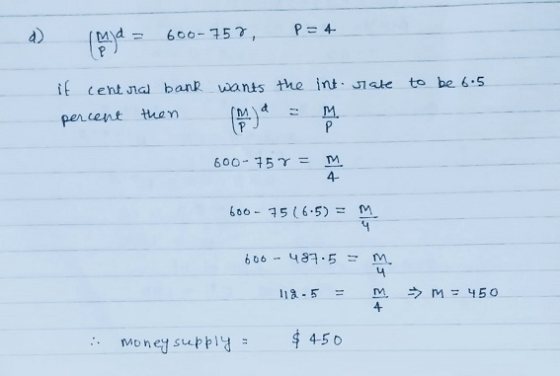 d) (M/P)^d = 600-75r, P = 4
if central bank wants the int. rate to be 6.5
percent then (M/P)^d = M/P
600-75r = M/4
600 - 75(6.5) = M/4
600 - 487.5 = M/4
112.5 = M/4 ⇒ M = 450
∴ money supply = $ 450